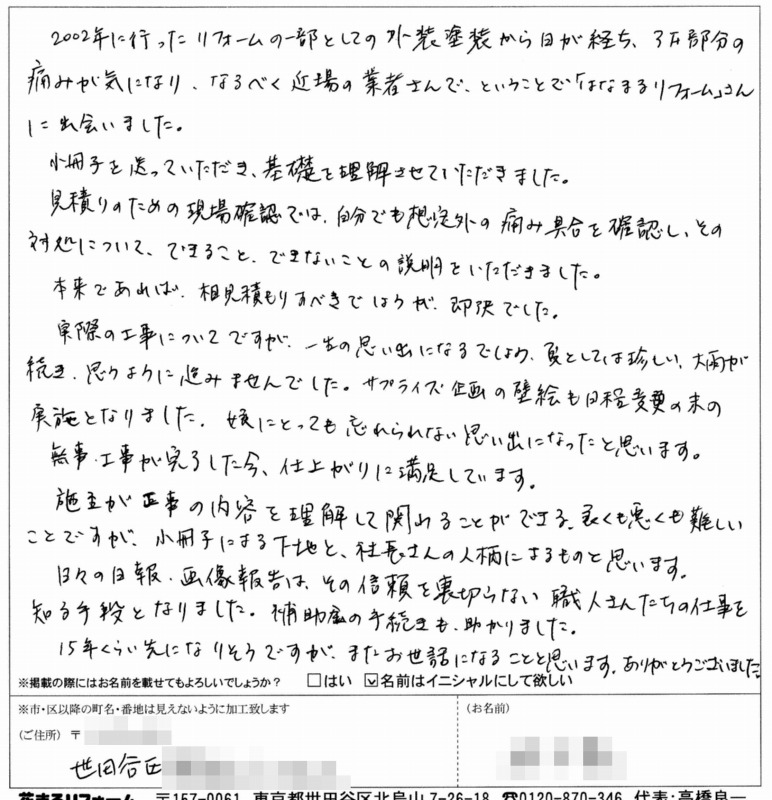 2002年に行ったリフォームの一部としての外装塗装から日が経ち、3F部分の
痛みが気になり、なるべく近場の業者さんで、ということで「はなまるリフォーム」さん
に出会いました。
小冊子を送っていただき、基礎を理解させていただきました。
見積りのための現場確認では、自分でも想定外の痛み具合を確認し、その
対処について、できること、できないことの説明をいただきました。
本来であれば、相見積もりすべきでしょうが、即決でした。
実際の工事についてですが、一生の思い出になるでしょう、夏としては珍しい、大雨が
続き、思うように進みませんでした。サプライズ企画の壁絵も日程変更の末の
実施となりました。娘にとっても忘れられない思い出になったと思います。
無事、工事が完了した今、仕上がりに満足しています。
施主が工事の内容を理解して関わることができる、良くも悪くも難しい
ことですが、小冊子による下地と、社長さんの人柄によるものと思います。
日々の日報、画像報告は、その信頼を裏切らない職人さんたちの仕事を
知る手段となりました。補助金の手続きも、助かりました。
15年くらい先になりそうですが、またお世話になることと思います。ありがとうございました
※掲載の際にはお名前を載せてもよろしいでしょうか？ □はい ☑名前はイニシャルにして欲しい
※市・区以降の町名・番地は見えないように加工致します
(お名前)
(ご住所) 〒
世田谷区
花まるリフォーム 〒157-0061 東京都世田谷区北烏山7-26-18 ☎0120-870-346 代表:高橋良一